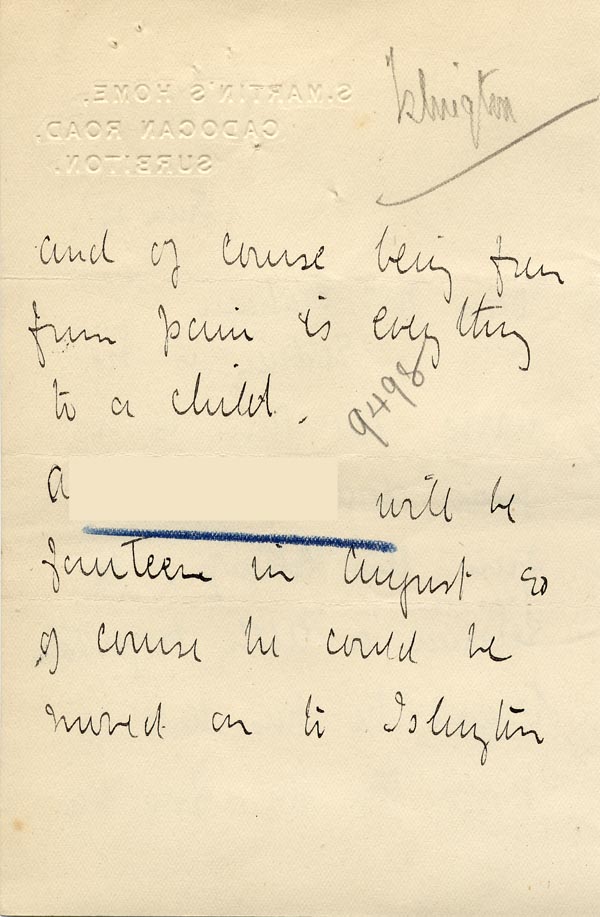 S. MARTIN'S HOME,
CADOGAN ROAD,
SURBITON.
Islington
and of course being free
from pain is everything
to a child.
9498
A
will be
fourteen in August so
of course he could be
moved on to Islington